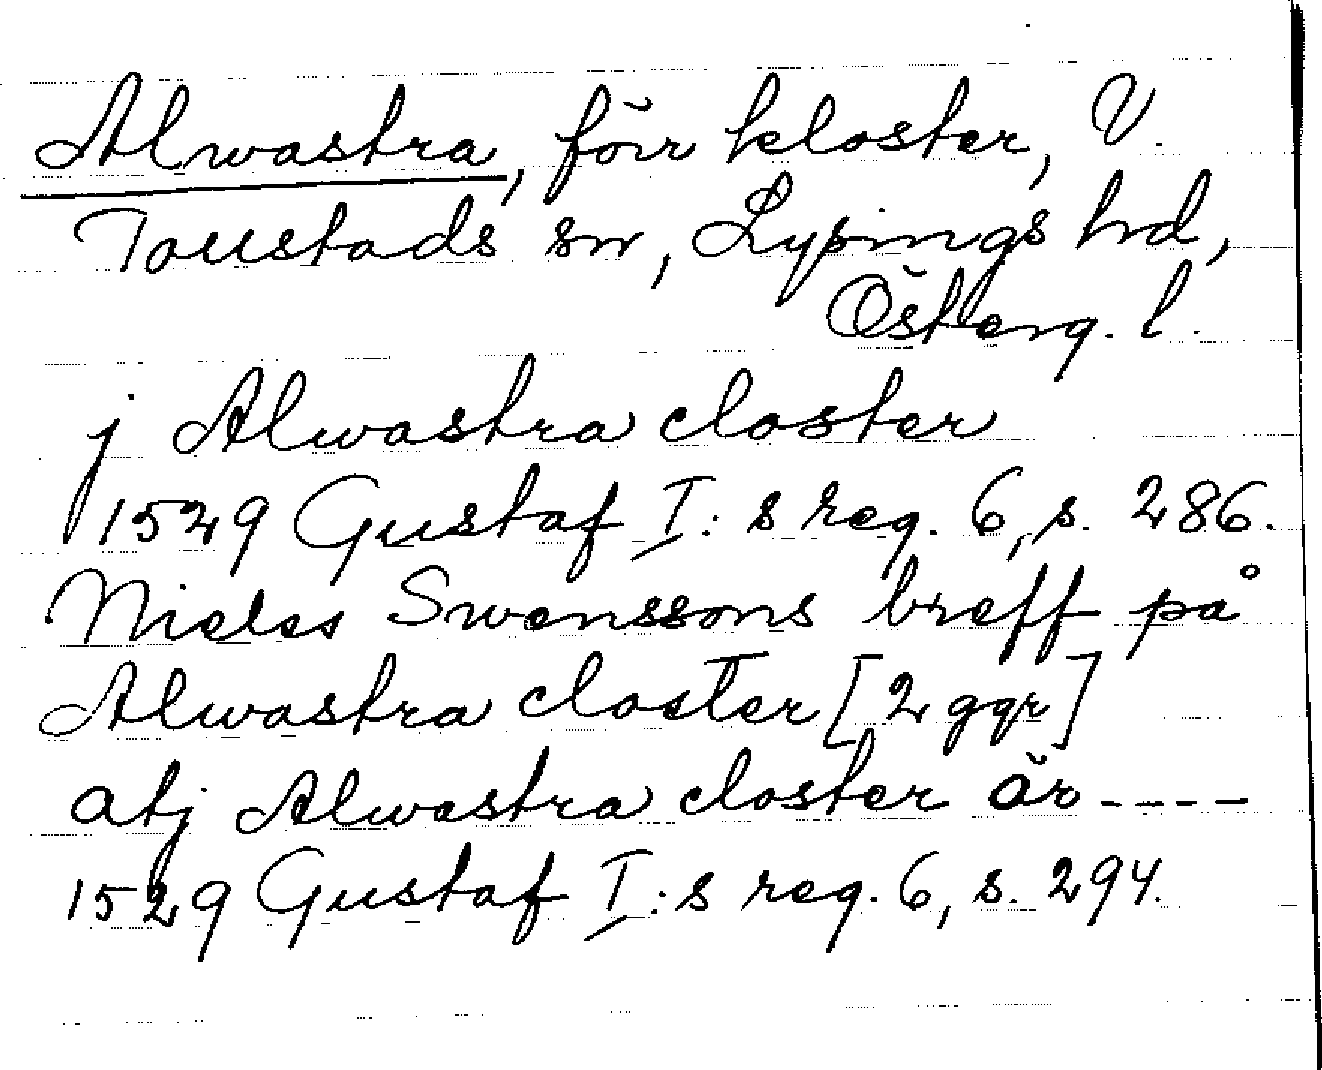 Alwastra, förr kloster, V.
Tollstads sn, Lysings hrd,
Österg. l.
j Alwastra closter
1529 Gustaf I:s reg. 6, s. 286.
Nieles Swenssons breff på
Alwastra closter [2 ggr]
atj Alwastra closter är ----
1529 Gustaf I:s reg. 6, s. 294.